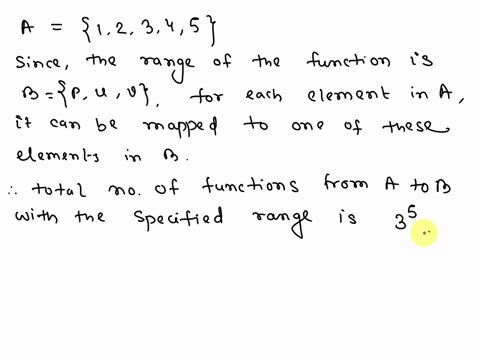 A = {1, 2, 3, 4, 5}
Since, the range of the function is
B = {P, u, v}, for each element in A,
it can be mapped to one of these
elements in B.
∴ total no. of functions from A to B
with the specified range is 3⁵